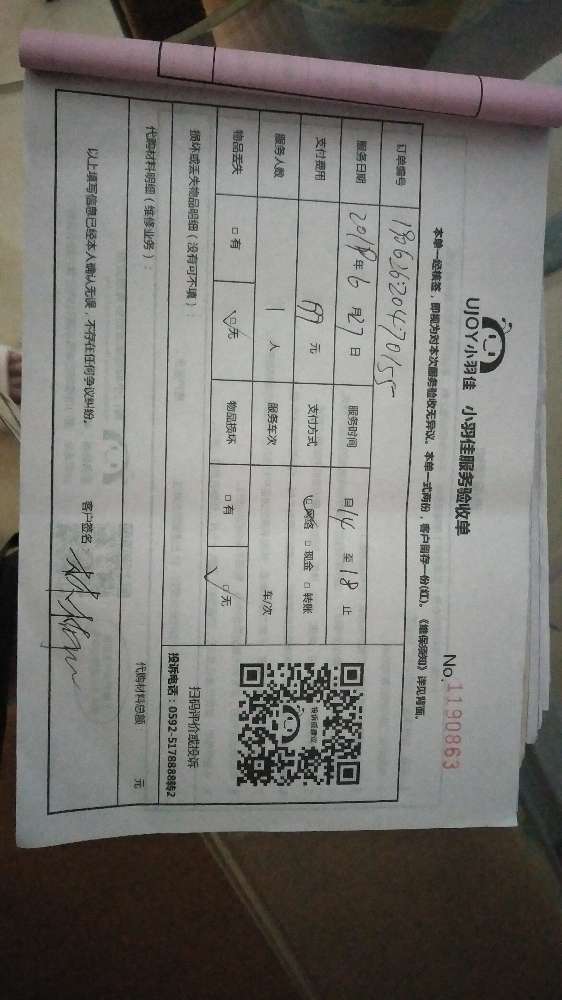 UJOY小羽佳 小羽佳服务验收单
No.1190863
本单一经核签，即视为对本次服务验收无异议。本单一式两份，客户留存一份(红)。《维保须知》详见背面。
订单编号 190626204770155
服务日期 2019年6月27日 服务时间 自14至18止
支付费用 元 支付方式 ☑网络 □现金 □转账
服务人数 1人 服务车次 车/次
物品丢失 □有 ☑无 物品损坏 □有 ☑无
投诉或建议
扫码评价或投诉
投诉电话：0592-5178888转2
损坏或丢失物品明细（没有可不填）：
代购材料明细（维修业务）： 代购材料总额： 元
以上填写信息已经本人确认无误，不存在任何争议纠纷。 客户签名：